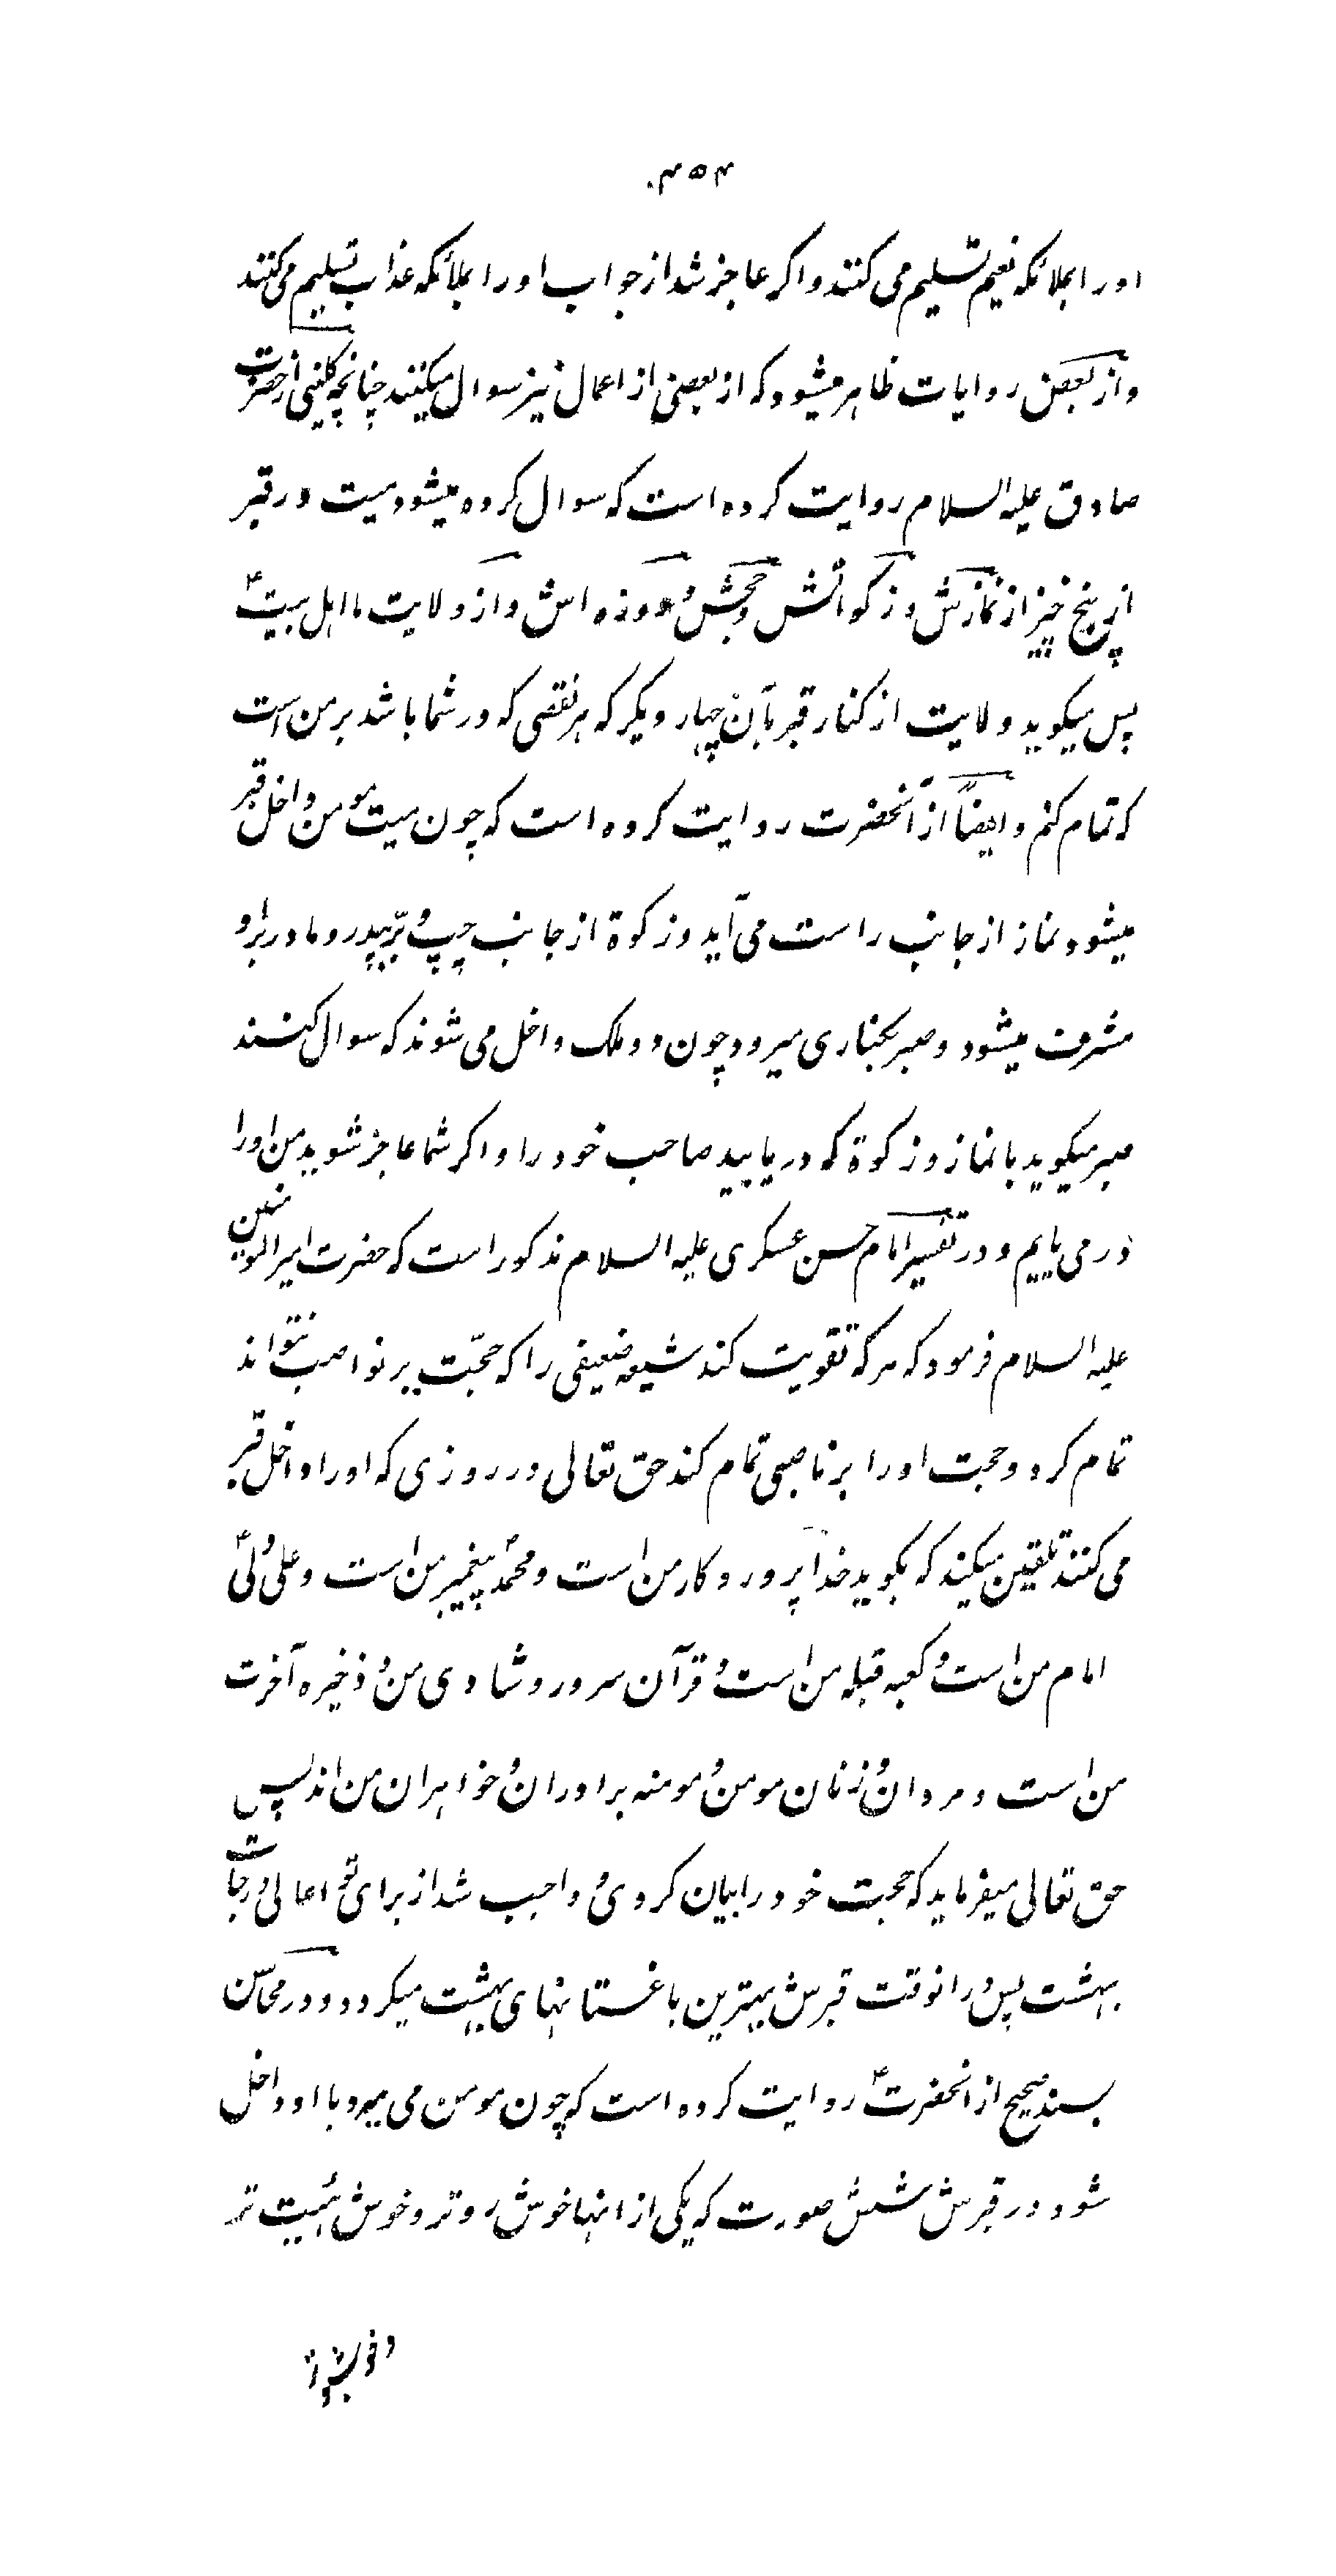 ۴۵۴
اورا بملائکه نعیم تسلیم می کنند و اگر عاجز شد از جواب اورا بملائکه عذاب تسلیم می کنند
و از بعض روایات ظاهر میشود که از بعضی از اعمال نیز سوال میکنند چنانچه کلینی از حضرت
صادق علیه السلام روایت کرده است که سوال کرده میشود میت در قبر
از پنج چیز از نمازش و زکواتش و حجش و روزه اش و از ولایت ما اهل بیتؑ
پس میکوید ولایت از کنار قبر بآن چهار دیکر که هر نقصی که در شما باشد بر من است
که تمام کنم و ایضاً از آنحضرت روایت کرده است که چون میت مومن داخل قبر
میشود نماز از جانب راست می آید و زکوة از جانب چپ و برّ پدر و مادر براو
مشرف میشود و صبر بکناری میرود چون دو ملک داخل می شوند که سوال کنند
صبر میکوید با نماز و زکوة که دریابید صاحب خود را و اکر شما عاجز شوید من اورا
در می یابم و در تفسیر امام حسن عسکری علیه السلام مذکور است که حضرت امیرالمومنین
علیه السلام فرمود که هرکه تقویت کند شیعه ضعیفی را که حجّت بر نواصب نتواند
تمام کرد و حجت اورا بر ناصبی تمام کند حق تعالی در روزی که اورا داخل قبر
می کنند تلقین میکند که بکوید خدا پروردکار من است و محمدؐ پیغمبر من است و علی ولیؑ
امام من است و کعبه قبله من است و قرآن سرور و شادی من و ذخیره آخرت
من است و مردان و زنان مومن و مومنه برادران و خواهران من اند پس
حق تعالی میفرماید که حجت خود را بیان کردی و واجب شد از برای تو اعالی درجات
بهشت پس در انوقت قبرش بهترین باغستانهای بهشت میکردد و در محاسن
بسند صحیح از آنحضرتؑ روایت کرده است که چون مومن می میرد با او داخل
شود در قبرش شش صورت که یکی از انها خوش روتر و خوش هئیت تر
و خوشبوتر